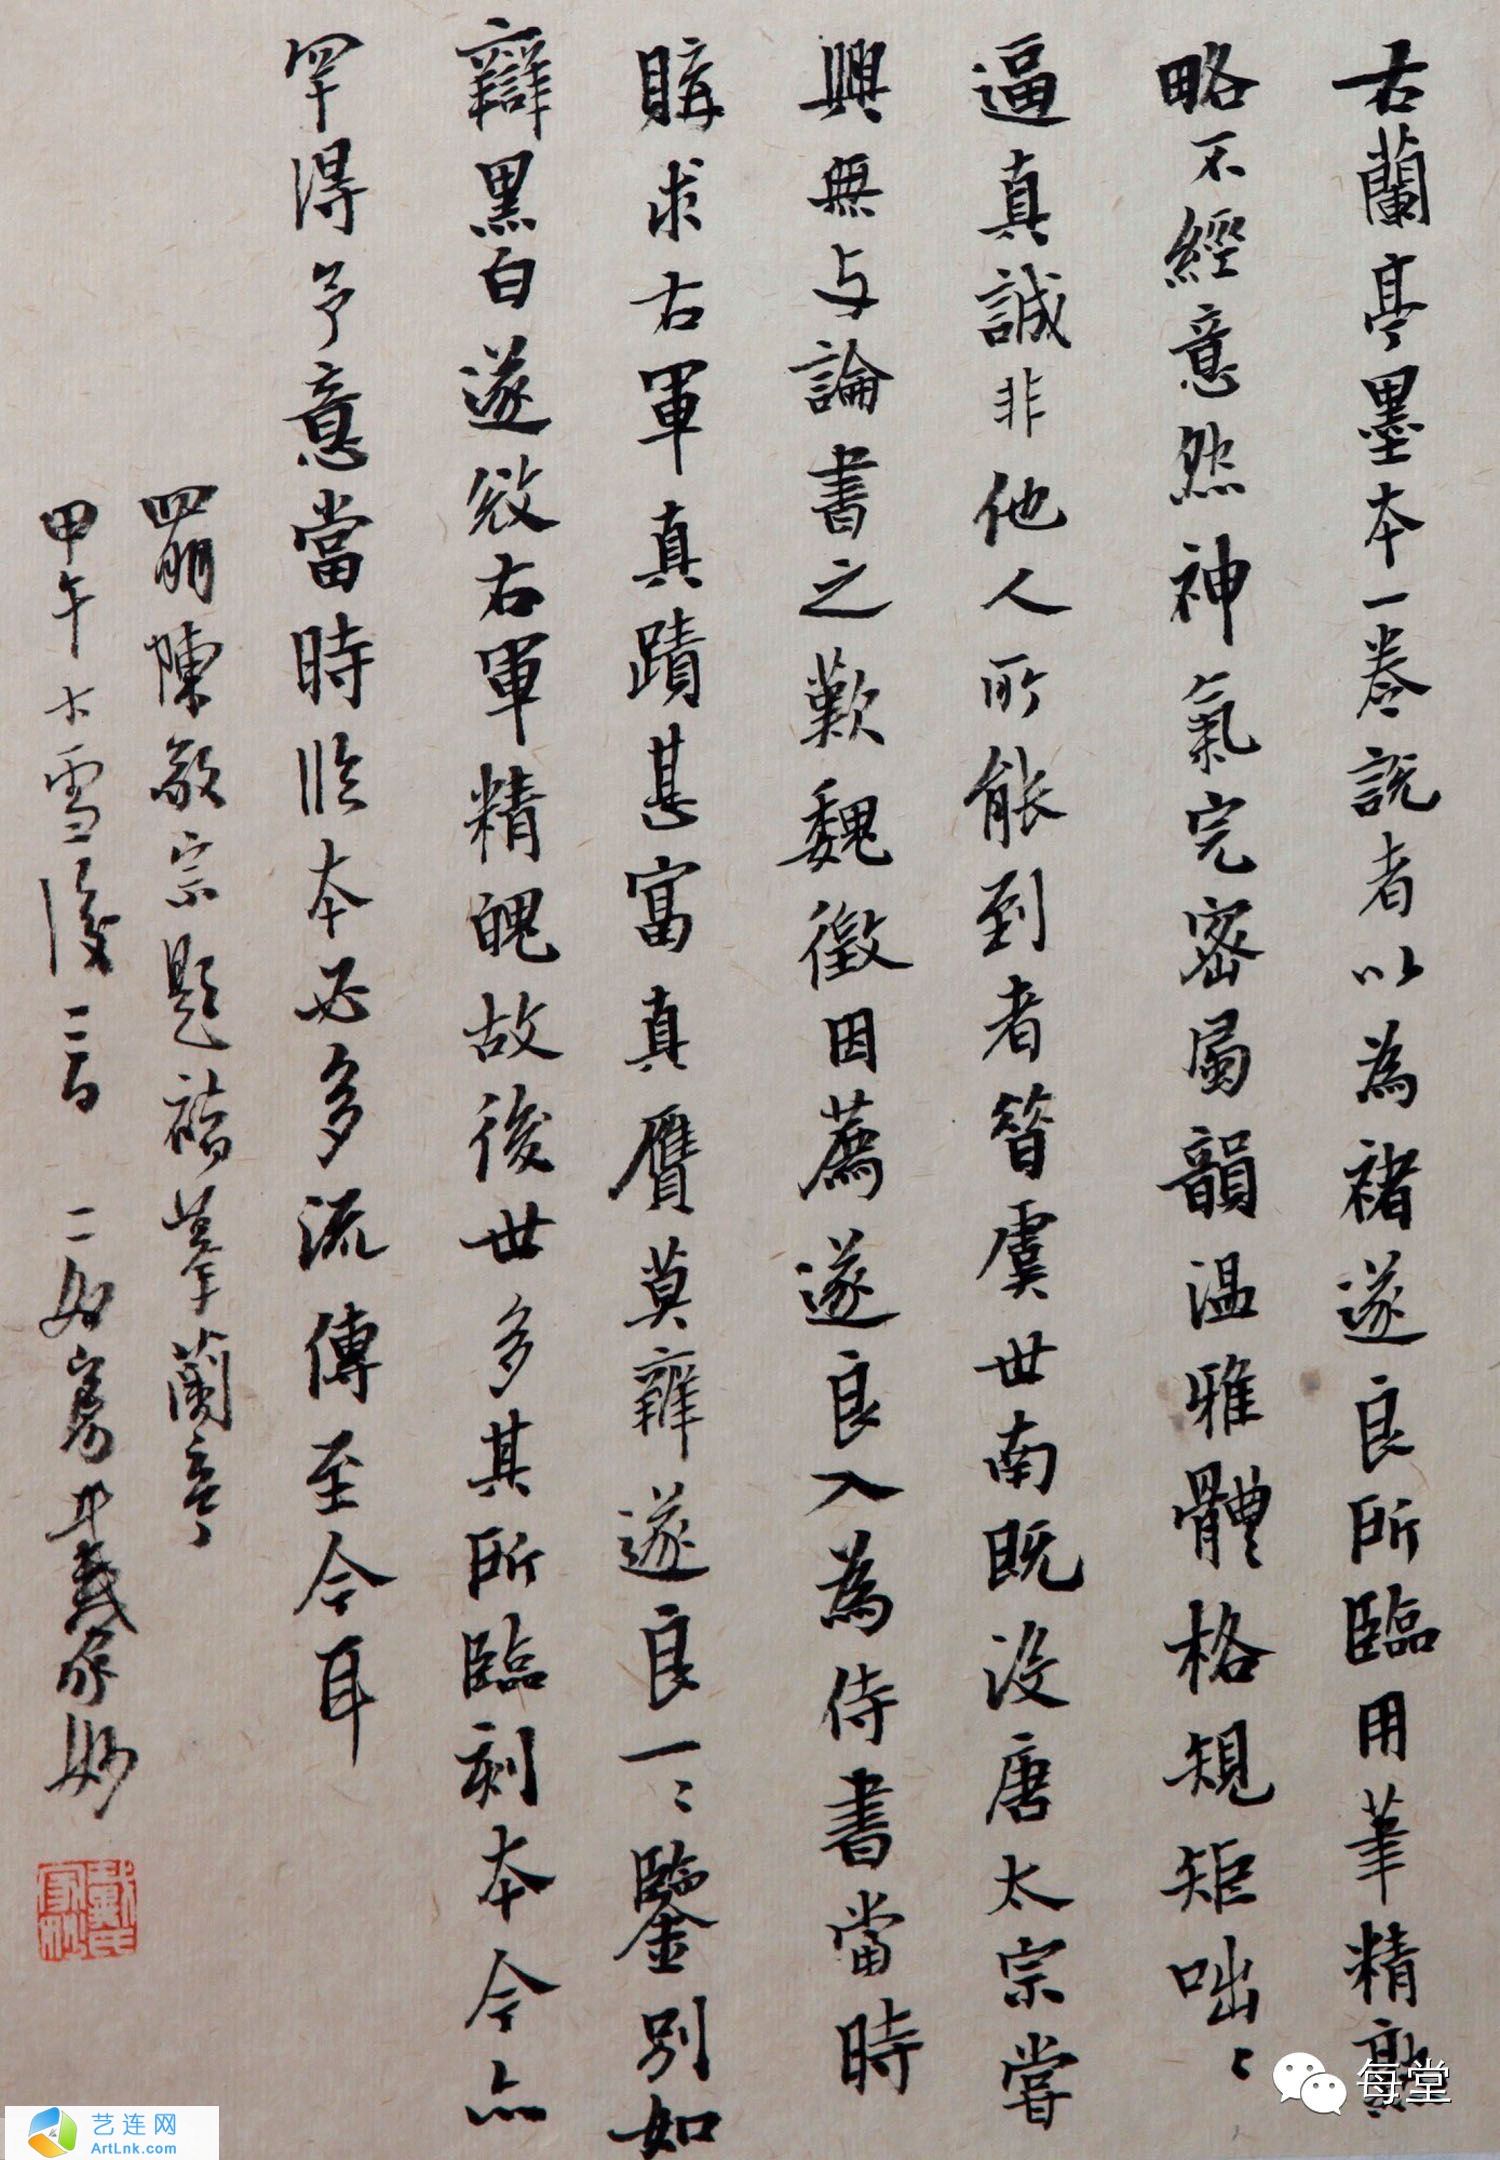 右蘭亭墨本一卷說者以為褚遂良所臨用筆精熟
略不經意然神氣完密風韻溫雅體格規矩咄〻
逼真誠非他人所能到者昔虞世南既沒唐太宗嘗
興無与論書之歎魏徵因薦遂良入為侍書當時
購求右軍真蹟甚富真贋莫辨遂良一〻鑒別如
辯黑白遂發右軍精魄故後世多其所臨刻本今亦
罕得予意當時臨本必多流傳至今耳
四明陳敬宗題褚摹蘭亭
甲午大雪後二日 二如寮 戴家妙
艺连网
ArtLnk.com
每堂